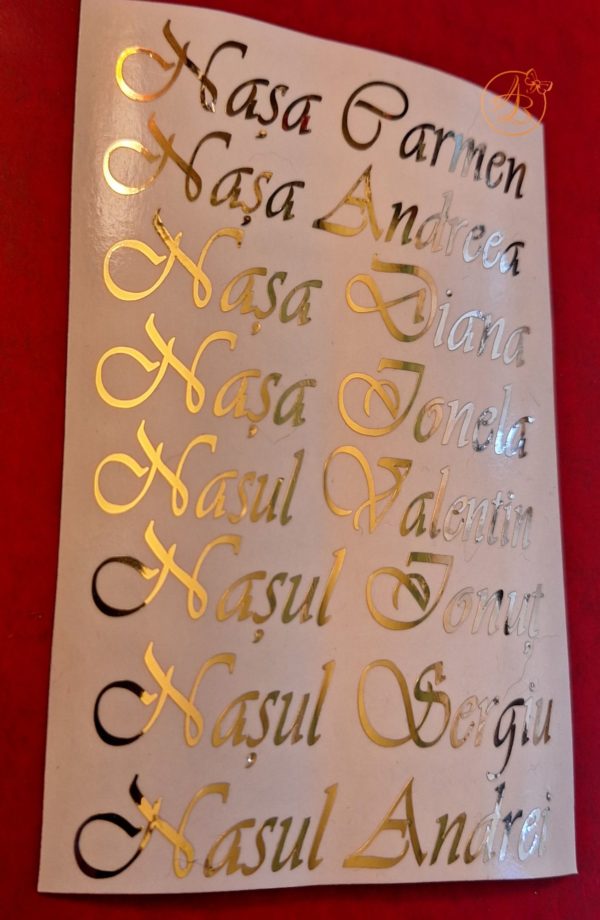 Nașa Carmen
Nașa Andreea
Nașa Diana
Nașa Ionela
Nașul Valentin
Nașul Ionuț
Nașul Sergiu
Nașul Andrei